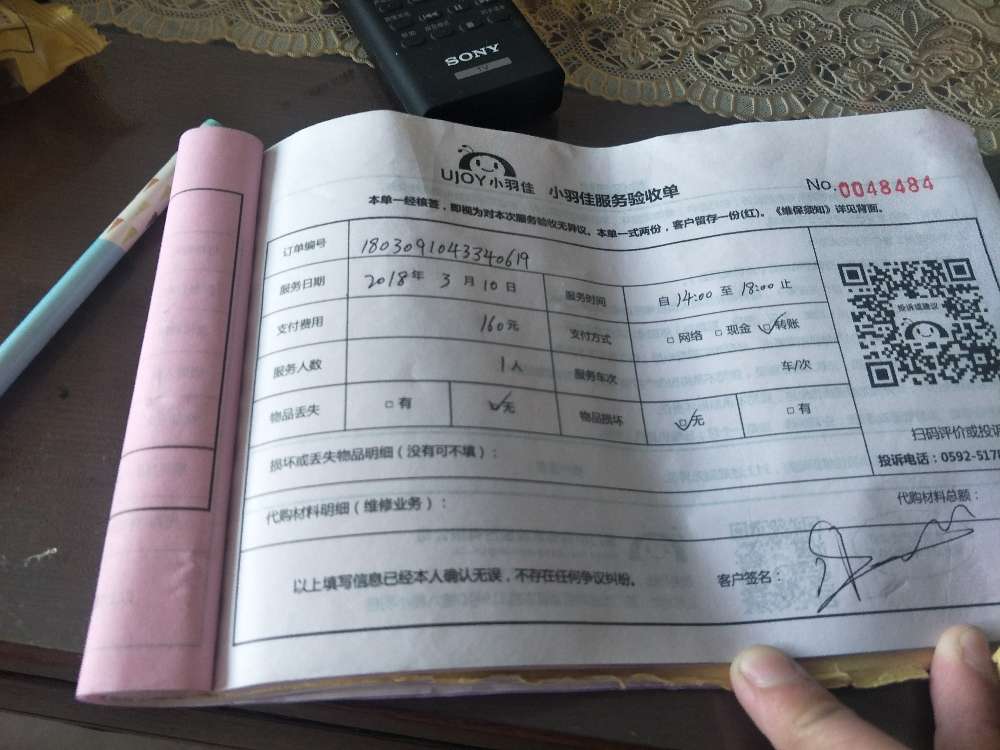 SONY
TV
UJOY小羽佳 小羽佳服务验收单 No.0048484
本单一经核签，即视为对本次服务验收无异议。本单一式两份，客户留存一份(红)。《维保须知》详见背面。
订单编号 1803091043340619
服务日期 2018年 3月 10日 服务时间 自 14:00 至 18:00 止
支付费用 160元 支付方式 □网络 □现金 ☑转账
服务人数 1人 服务车次 车/次
物品丢失 □有 ☑无 物品损坏 ☑无 □有
投诉或建议
扫码评价或投诉
投诉电话：0592-5178
损坏或丢失物品明细（没有可不填）：
代购材料明细（维修业务）： 代购材料总额：
以上填写信息已经本人确认无误，不存在任何争议纠纷。 客户签名：